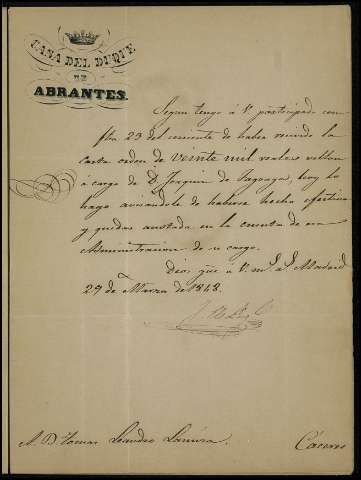 CASA DEL DUQUE
DE
ABRANTES.
Segun tengo á V. participado con
fha 23 del corriente de haber recivido la
carta orden de veinte mil reales vellon
á cargo de D. Joaquin de Fagoaga, hoy lo
hago avisandole de haberse hecho efectiva
y quedar anotada en la cuenta de esa
Administracion de su cargo.
Dios gue á V. m.s a.s Madrid
29 de Marzo de 1848.
S. D. Tomas Leandro
Cáceres